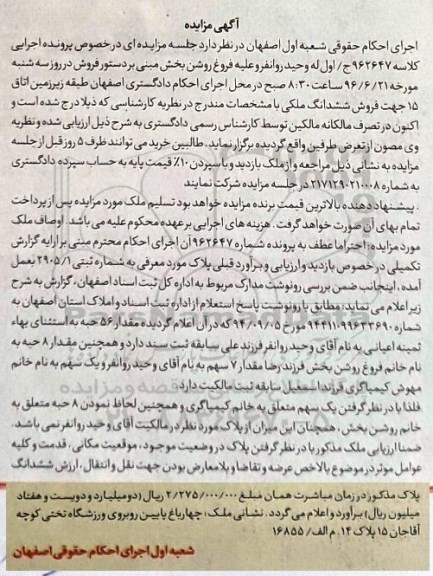 آگهی مزایده
اجرای احکام حقوقی شعبه اول اصفهان در نظر دارد جلسه مزایده ای در خصوص پرونده اجرایی
کلاسه ۹۶۲۶۴۷ ج/ اول له وحید روانفر و علیه فروغ روشن بخش مبنی بر دستور فروش در روز سه شنبه
مورخه ۹۶/۶/۲۱ ساعت ۸:۳۰ صبح در محل اجرای احکام دادگستری اصفهان طبقه زیرزمین اتاق
۱۵ جهت فروش ششدانگ ملکی با مشخصات مندرج در نظریه کارشناسی که ذیلا درج شده است و
اکنون در تصرف مالکانه مالکین توسط کارشناس رسمی دادگستری به شرح ذیل ارزیابی شده و نظریه
وی مصون از تعرض طرفین واقع گردیده برگزار نماید. طالبین خرید می توانند ظرف ۵ روز قبل از جلسه
مزایده به نشانی ذیل مراجعه و از ملک بازدید و با سپردن ۱۰٪ قیمت پایه به حساب سپرده دادگستری
به شماره ۲۱۷۱۲۹۰۲۱۰۰۰۸ در جلسه مزایده شرکت نمایند
. پیشنهاد دهنده بالاترین قیمت برنده مزایده خواهد بود تسلیم ملک مورد مزایده پس از پرداخت
تمام بهای آن صورت خواهد گرفت. هزینه های اجرایی بر عهده محکوم علیه می باشد. اوصاف ملک
مورد مزایده: احتراما عطف به پرونده شماره ۹۶۲۶۴۷ آن اجرای احکام محترم مبنی بر ارایه گزارش
تکمیلی در خصوص بازدید و ارزیابی و برآورد قبلی پلاک مورد معرفی به شماره ثبتی ۲۹۰۵/۱ بعمل
آمده، اینجانب ضمن بررسی رونوشت مدارک مربوط به اداره کل ثبت اسناد اصفهان، گزارش به شرح
زیر اعلام می نماید: مطابق با رونوشت پاسخ استعلام از اداره ثبت اسناد و املاک استان اصفهان به
شماره ۹۴۴۱۱۰۹۹۶۳۳۶۹۰ مورخ ۹۴/۰۹/۰۵ که در آن اعلام گردیده مقدار ۵۶ حبه به استثنای بهاء
ثمینه اعیانی به نام آقای وحید روانفر فرزند علی سابقه ثبت سند دارد و همچنین مقدار ۸ حبه به
نام خانم فروغ روشن بخش فرزند رضا مقدار ۷ سهم به نام آقای وحید روانفر و یک سهم به نام خانم
مهوش کیمیاگری فرزند اسمعیل سابقه ثبت مالکیت دارد:
فلذا با در نظر گرفتن یک سهم متعلق به خانم کیمیاگری و همچنین لحاظ نمودن ۸ حبه متعلق به
خانم روشن بخش، همچنان این میزان از پلاک مورد نظر در مالکیت آقای وحید روانفر نمی باشد.
ضمنا ارزیابی ملک مذکور با در نظر گرفتن پلاک در وضعیت موجود، موقعیت مکانی، قدمت و کلیه
عوامل موثر در موضوع بالاخص عرضه و تقاضا و بلامعارض بودن جهت نقل و انتقال، ارزش ششدانگ
پلاک مذکور در زمان مباشرت همان مبلغ ۲/۲۷۵/۰۰۰/۰۰۰ ریال (دو میلیارد و دویست و هفتاد
میلیون ریال) برآورد و اعلام می گردد. نشانی ملک: چهارباغ پایین روبروی ورزشگاه تختی کوچه
آقاجان ۱۵ پلاک ۱۴. م الف/ ۱۶۸۵۵
شعبه اول اجرای احکام حقوقی اصفهان